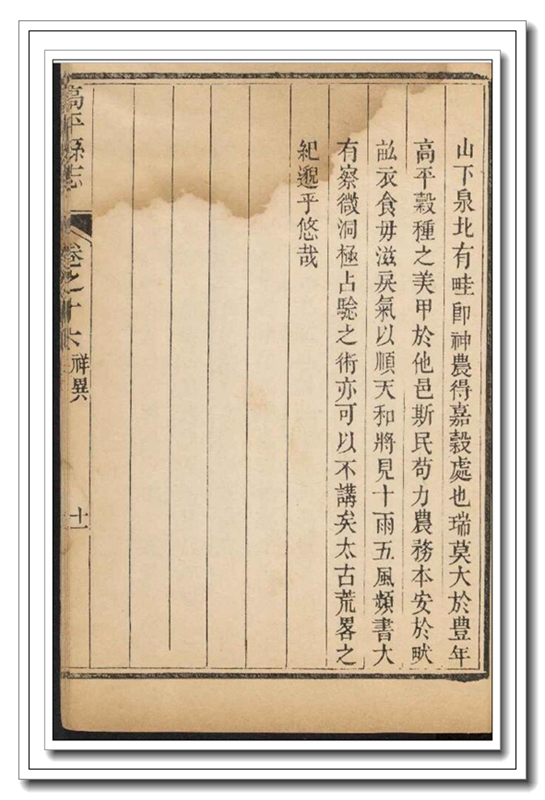 山下泉北有畦卽神農得嘉穀處也瑞莫大於豊年
高平穀種之美甲於他邑斯民苟力農務本安於畎
畝衣食毋滋戾氣以順天和將見十雨五風頻書大
有察微洞極占騐之術亦可以不講矣太古荒畧之
紀邈乎悠哉
高平縣志
卷之十六
祥異
十一